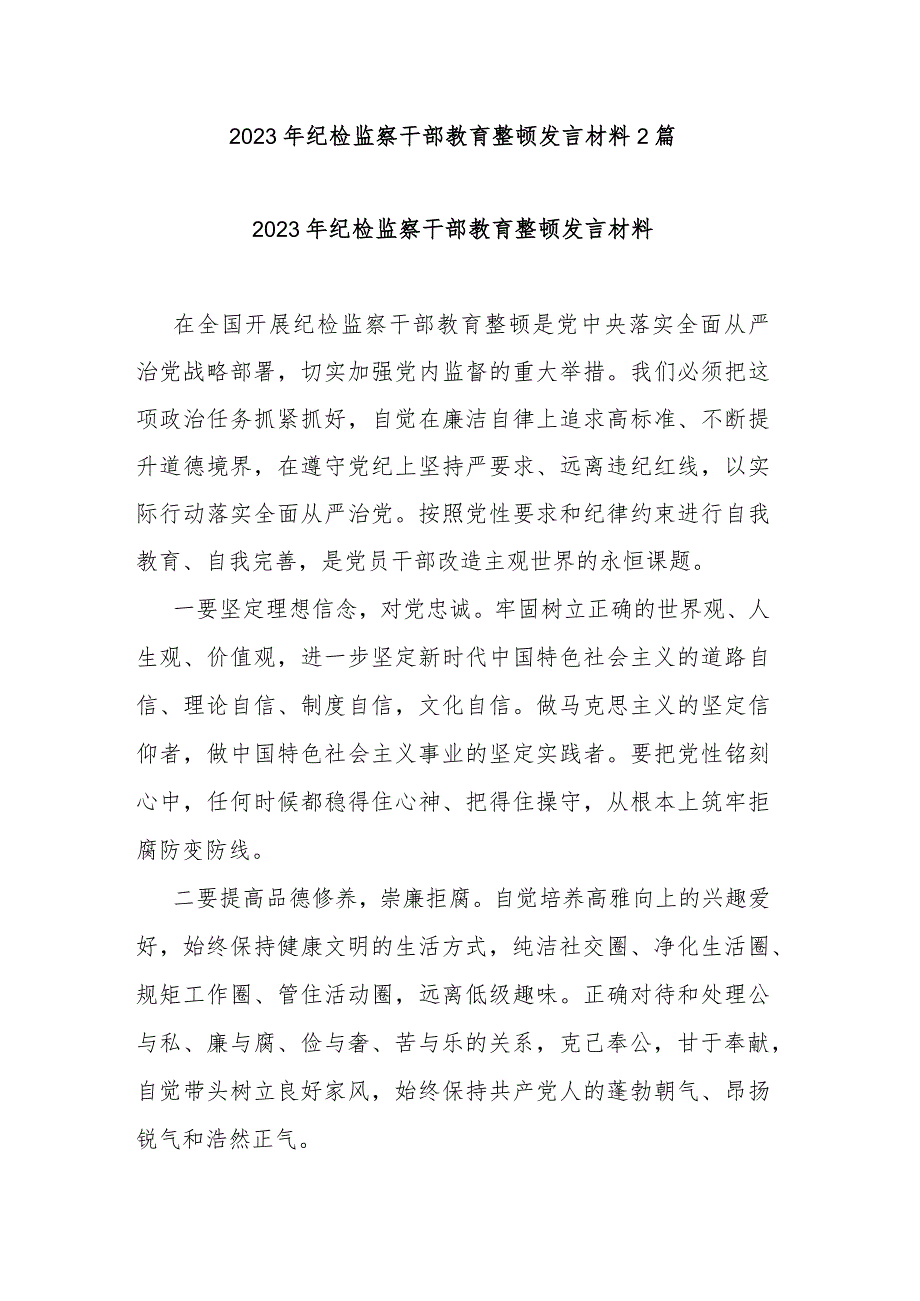 2023年纪检监察干部教育整顿发言材料2篇
2023年纪检监察干部教育整顿发言材料
在全国开展纪检监察干部教育整顿是党中央落实全面从严
治党战略部署，切实加强党内监督的重大举措。我们必须把这
项政治任务抓紧抓好，自觉在廉洁自律上追求高标准、不断提
升道德境界，在遵守党纪上坚持严要求、远离违纪红线，以实
际行动落实全面从严治党。按照党性要求和纪律约束进行自我
教育、自我完善，是党员干部改造主观世界的永恒课题。
一要坚定理想信念，对党忠诚。牢固树立正确的世界观、人
生观、价值观，进一步坚定新时代中国特色社会主义的道路自
信、理论自信、制度自信，文化自信。做马克思主义的坚定信
仰者，做中国特色社会主义事业的坚定实践者。要把党性铭刻
心中，任何时候都稳得住心神、把得住操守，从根本上筑牢拒
腐防变防线。
二要提高品德修养，崇廉拒腐。自觉培养高雅向上的兴趣爱
好，始终保持健康文明的生活方式，纯洁社交圈、净化生活圈、
规矩工作圈、管住活动圈，远离低级趣味。正确对待和处理公
与私、廉与腐、俭与奢、苦与乐的关系，克己奉公，甘于奉献，
自觉带头树立良好家风，始终保持共产党人的蓬勃朝气、昂扬
锐气和浩然正气。